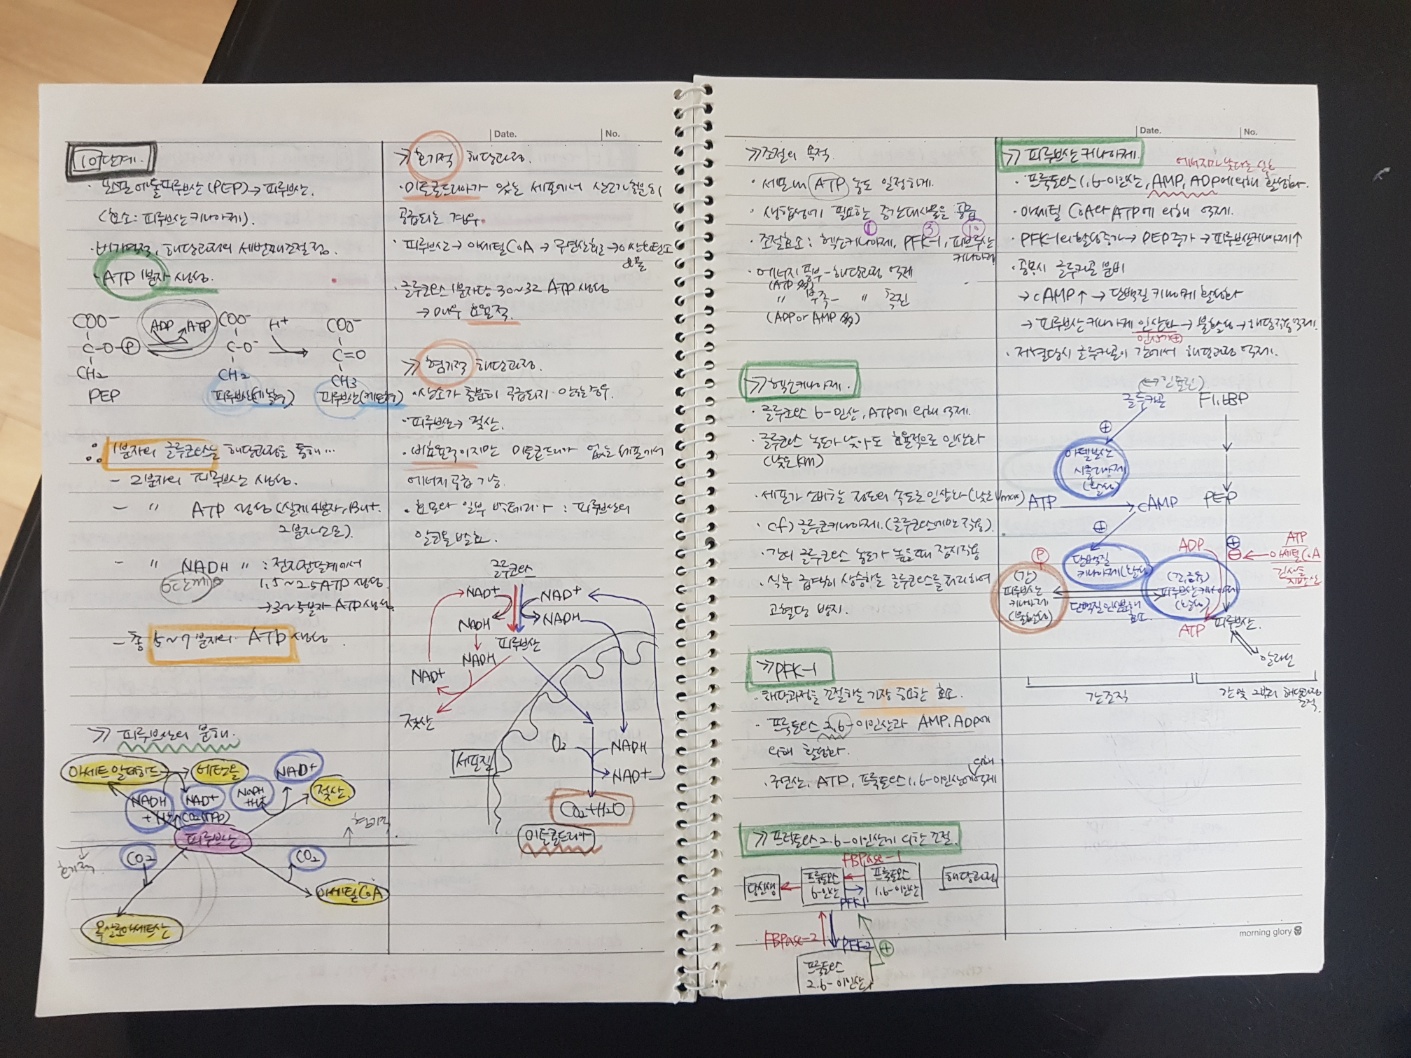 Date.
No.
10단계.
· 포스포에놀피루브산(PEP)→피루브산.
(효소: 피루브산키나아제).
· 비가역적, 해당과정의 세번째조절점.
· ATP 1분자 생성.
COO⁻
C-O-Ⓟ
CH₂
PEP
ADP
ATP
COO⁻
C-O⁻
CH₂
피루브산(에놀형)
H⁺
COO⁻
C=O
CH₃
피루브산(케토형)
1분자의 글루코스는 해당과정을 통해…
- 2분자의 피루브산 생성.
- 〃 ATP 생성(실제 4분자, But.
2분자소모).
- 〃 NADH 〃 : 전자전달계에서
6단계
1.5~2.5ATP 생성
→3~5분자 ATP생성.
- 총 5~7분자의 ATP 생성
≫ 피루브산의 분해.
아세트알데히드
에탄올
NADH
+H⁺
NAD⁺
CO₂(TPP)
NADH
+H⁺
NAD⁺
젖산
피루브산
혐기적
호기적
CO₂
CO₂
아세틸CoA
옥살로아세트산
≫ 호기적 해당과정.
· 미토콘드리아가 있는 세포에서 산소가 충분히
공급되는 경우.
· 피루브산→아세틸CoA→구연산회로→이산화탄소
물
· 글루코스 1분자당 30~32 ATP 생성
→매우 효율적.
≫ 혐기적 해당과정.
· 산소가 충분히 공급되지 않는경우.
· 피루브산→젖산.
· 비효율적이지만 미토콘드리아 없는 세포에서
에너지공급 가능.
· 효모와 일부 박테리아 : 피루브산의
알코올발효.
글루코스
NAD⁺
NAD⁺
NADH
NADH
피루브산
NADH
NAD⁺
젖산
세포질
O₂
NADH
NAD⁺
CO₂+H₂O
미토콘드리아
≫조절의 목적
· 세포내 ATP 농도 일정하게.
· 생합성에 필요한 중간대사물을 공급
① ③ ⑩
· 조절효소: 헥소키나아제, PFK-1, 피루브산
키나아제
· 에너지 풍부 - 해당과정 억제
〃 부족 - 〃 촉진
≫헥소키나아제.
· 글루코스 6-인산, ATP에 의해 억제.
· 글루코스 농도가 낮아도 효율적으로 인산화
(낮은 Km)
· 세포가 소비하는 정도의 속도로 인산화(낮은 Vmax)
· cf) 글루코키나아제.(글루코스에만 작용).
· 간의 글루코스 농도가 높을때 잠시작용
· 식후 급격히 상승하는 글루코스를 처리하여
고혈당 방지.
≫PFK-1
· 해당과정을 조절하는 가장 중요한 효소.
· 프룩토스 2,6-이인산과 AMP, ADP에
의해 활성화.
≫프룩토스 2.6-이인산에 의한 조절.
FBPase-1
당신생
프룩토스
6-인산
프룩토스
1,6-이인산
해당과정
PFK-1
FBPase-2
PFK-2
⊕
프룩토스
2.6-이인산
Date.
No.
≫ 피루브산키나아제.
· 프룩토스 1,6-이인산, AMP, ADP에 의해 활성화.
· 아세틸 CoA와 ATP에 의해 억제.
· PFK-1의 활성증가→PEP증가→피루브산키나아제↑
· 공복시 글루카곤 분비
→cAMP↑→단백질 키나아제 활성화
→피루브산키나아제 인산화→불활성→해당과정억제.
· 저혈당시 글루카곤이 간에서 해당과정 억제.
(↔인슐린)
글루카곤
F1,6BP
⊕
아데닐산
시클라아제
(활성)
ATP
cAMP
PEP
⊕
단백질
키나아제(활성)
ADP
⊕
⊖
ATP
아세틸CoA
Ⓟ
(간)
피루브산
키나아제
(불활성)
ATP
피루브산
알라닌
간조직
morning glory